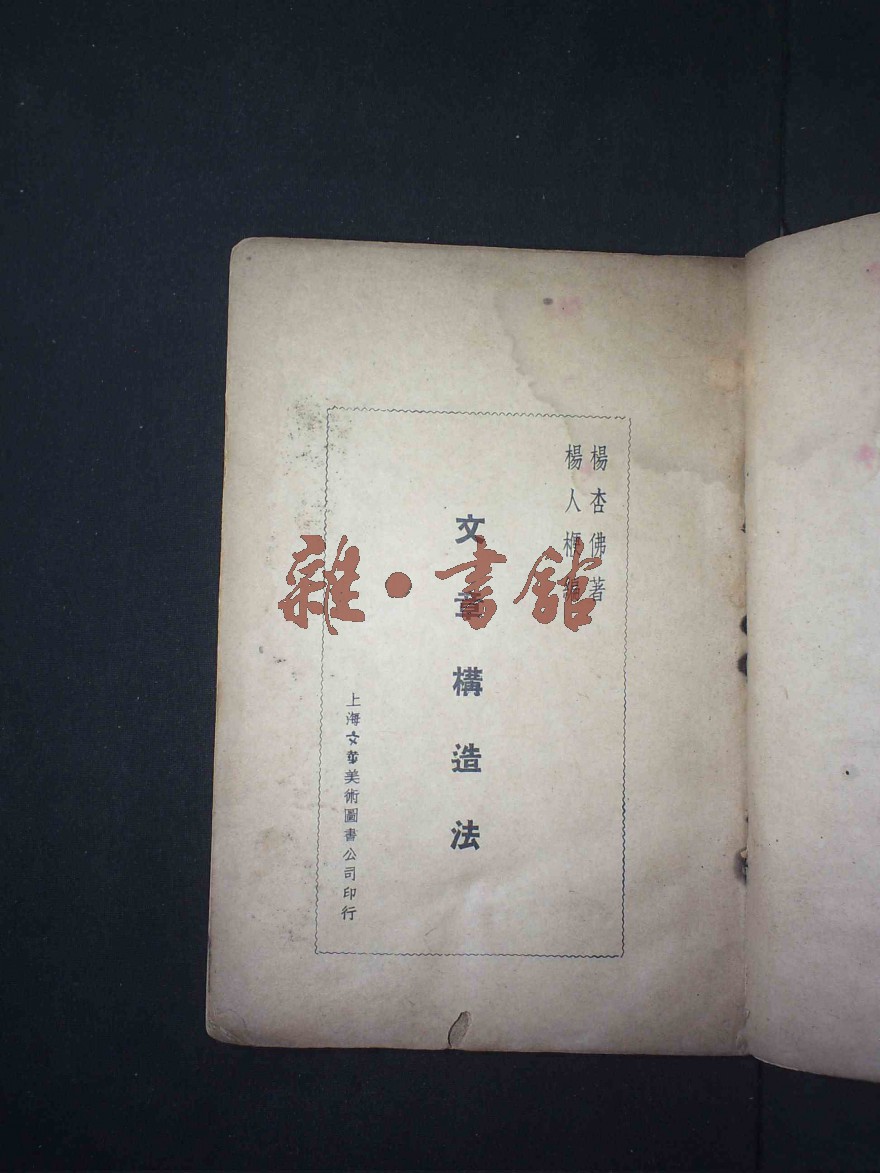 楊杏佛著
楊人楩編
文章構造法
上海文華美術圖書公司印行
雜·書館